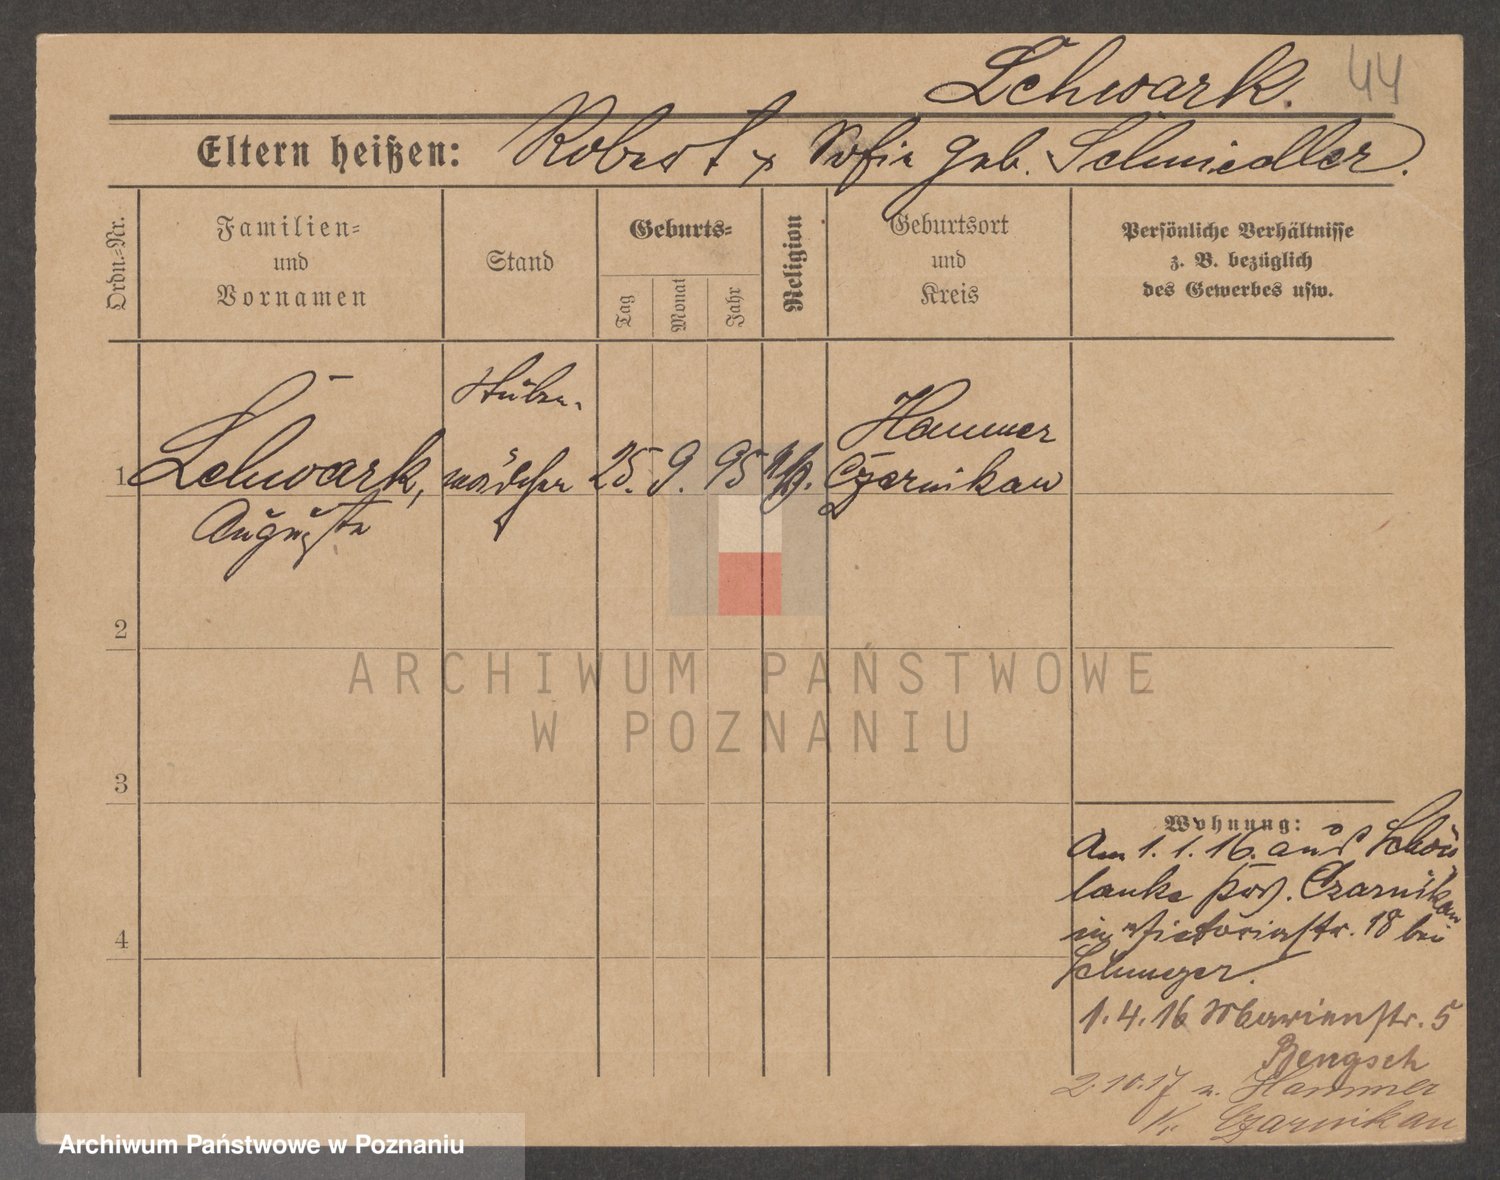 Lehwark. 44
Eltern heißen: Robert & Sofie geb. Schmiedller.
Ordn.=Nr.
Familien=
und
Vornamen
Stand
Geburts=
Tag
Monat
Jahr
Religion
Geburtsort
und
Kreis
Persönliche Verhältnisse
z. B. bezüglich
des Gewerbes usw.
1 Lehwark, Stuben- 25. 9. 95 Hammer
Auguste mädchen Czarnikau
2
3
4
Wohnung:
Am 1. 1. 16. aus Schön
lanke Czarnikau
in Victoriastr. 18 bei
1. 4. 16 Marienstr. 5
Bengsch
2.10.17 n. Hammer
Kr. Czarnikau
ARCHIWUM PAŃSTWOWE
W POZNANIU
Archiwum Państwowe w Poznaniu